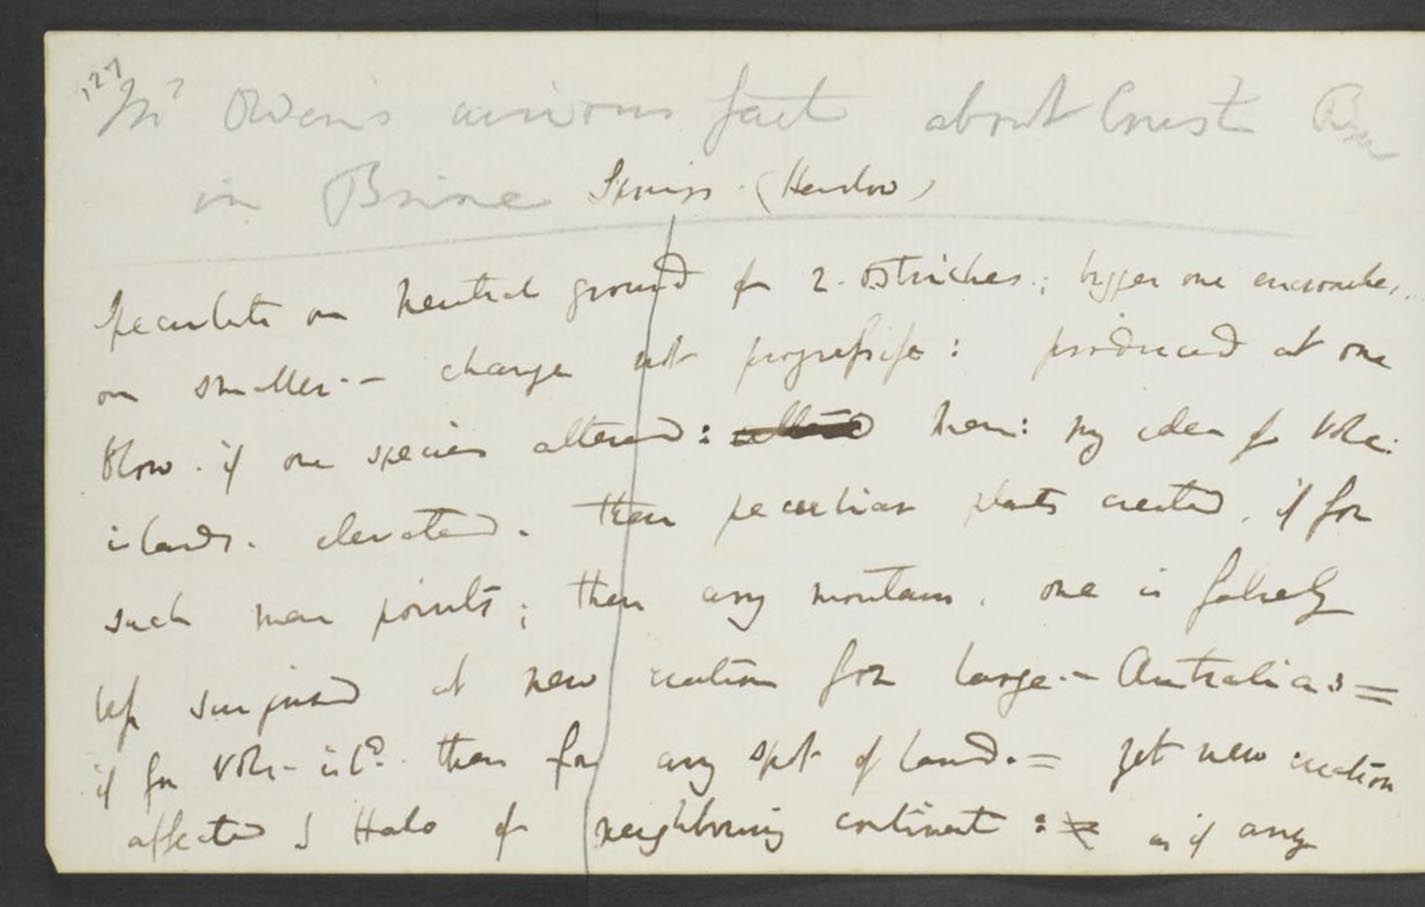 127
Mr Owen's curious fact about Crust
in Brine Springs. (Henslow)
Speculate on neutral ground of 2. ostriches; bigger one encroaches
on smaller.— change not progressife: produced at one
blow. if one species altered: altered Here: my idea of Volc:
islands. elevated. then peculiar plants created. if for
such mere points; then any mountain, one is falsely
less surprised at new creation for large.— Australia's =
if for volc. isld. then for any spot of land. = yet new creation
affected by Halo of neighbouring continent: as if any